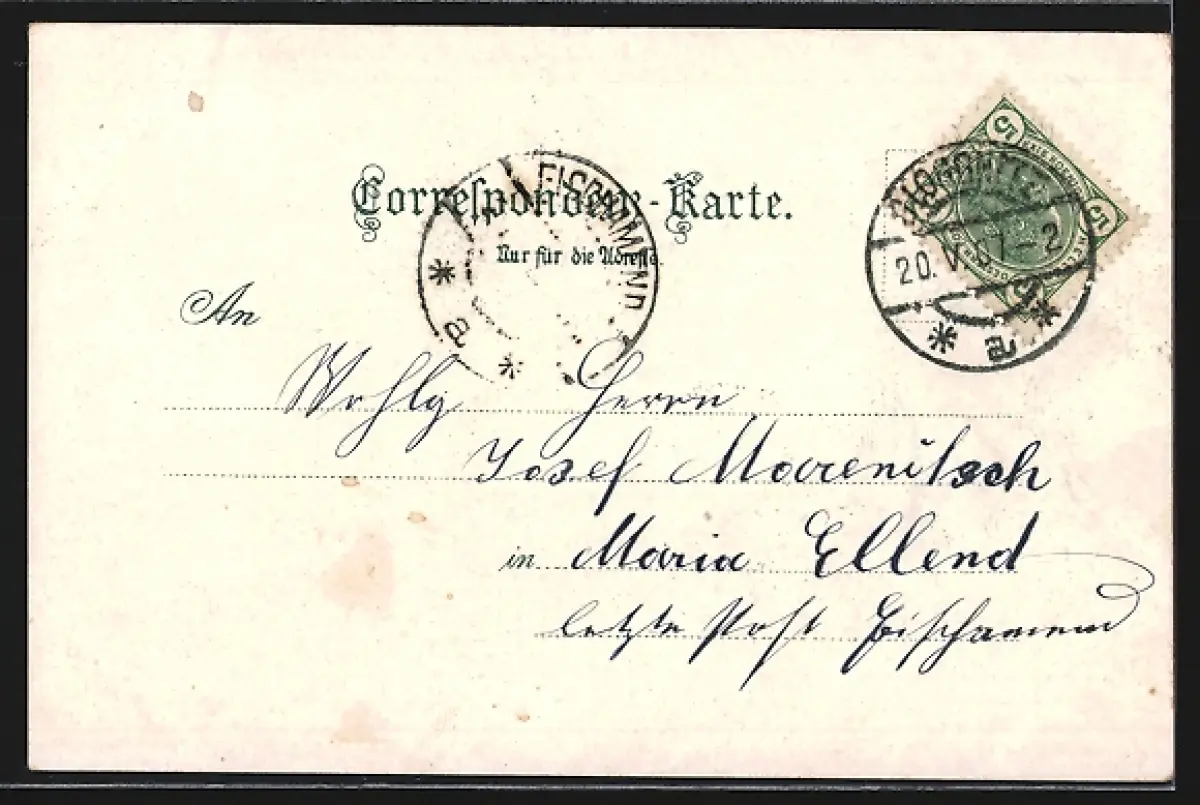 Correspondenz-Karte.
Nur für die Adresse.
FISCHAMEND
* a *
20. V. 07-2
* a *
5 5 5
An
Wohlg Herrn
Josef Moarenitsch
in Maria Ellend
letzte Post Fischamend